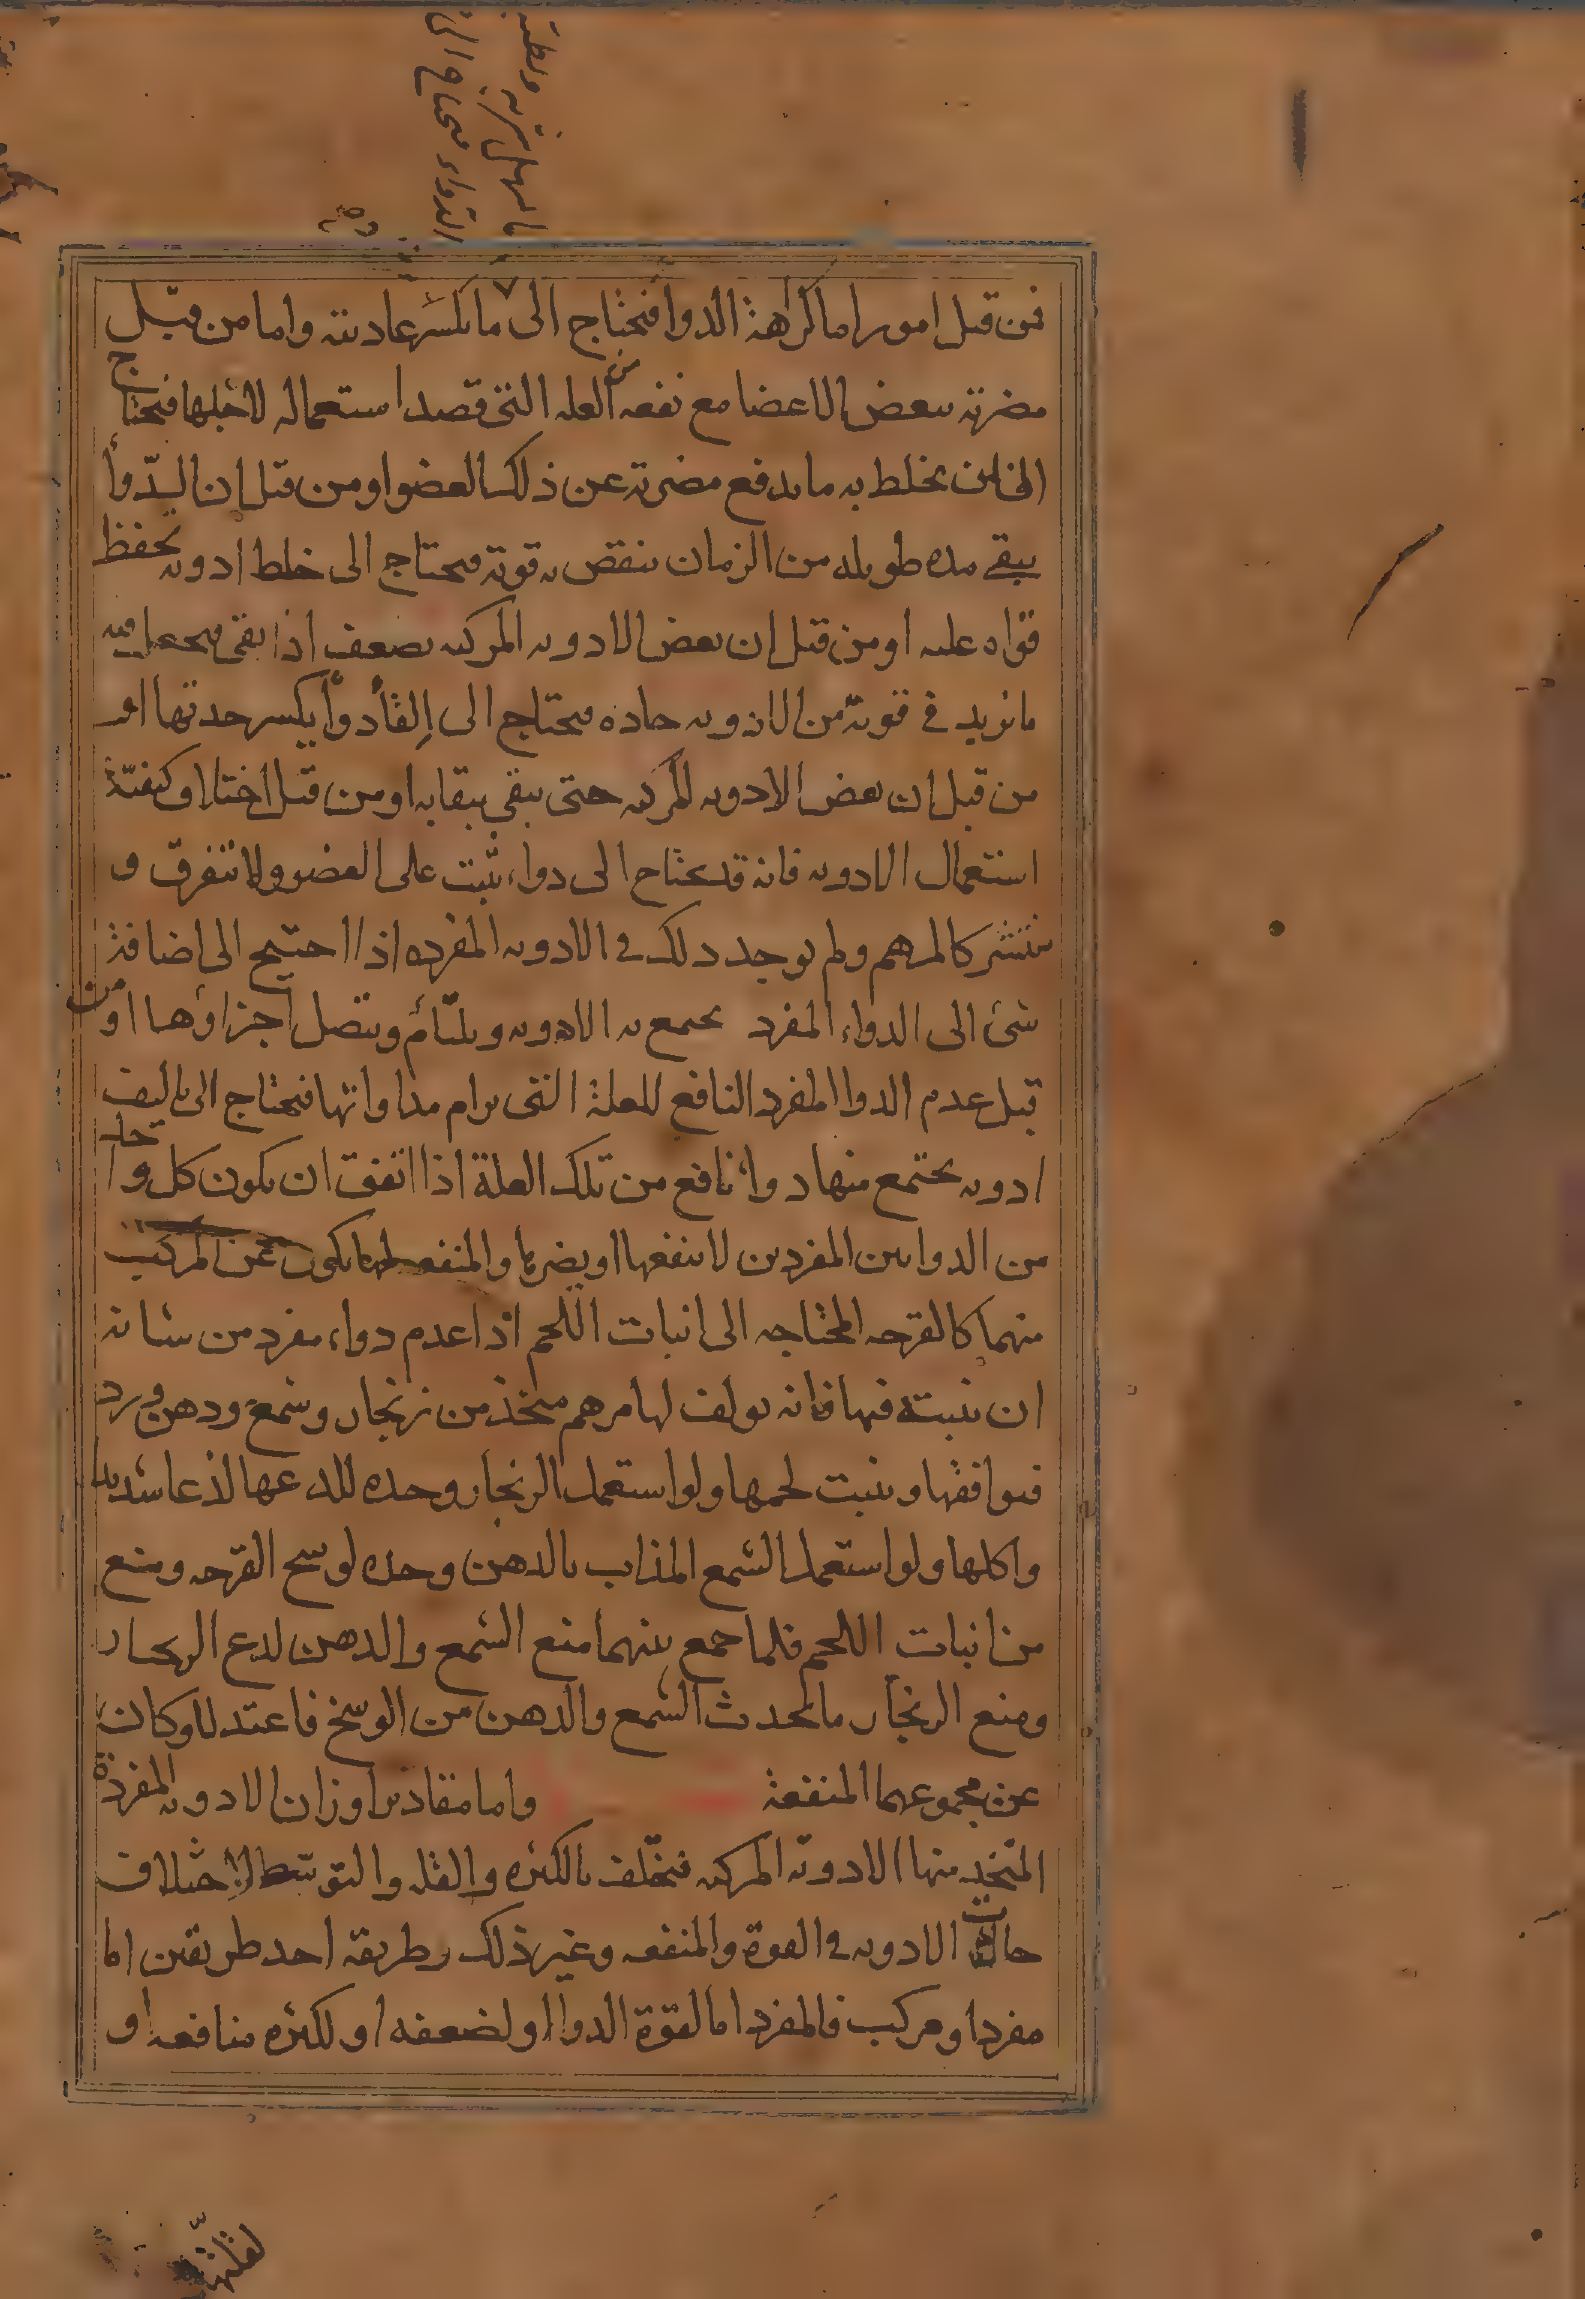 فمن قبل امور اما لكراهة الدوا فنحتاج الى ما يكسر عاديته واما من قبل
مضرته ببعض الاعضا مع نفعه من العله التى قصد استعماله لاجلها فنحتاج
الى ان يخلط به ما يدفع مضرته عن ذلك العضو او من قبل ان الدوأ
يبقى مده طويله من الزمان ينقص به قوته فيحتاج الى خلط ادويه يحفظ
قواه عليه او من قبل ان بعض الادويه المركبه يضعف اذا بقى فيجعل فيه
ما يزيد في قوته من الادويه حاده فيحتاج الى إلقأ دوأ يكسر حدتها او
من قبل ان بعض الادويه المركبه حتى يبقى ببقايه او من قبل اختلاف كيفيّة
استعمال الادويه فانه قد يحتاج الى دواء يثبت على العضو ولا تتفرق و
ينتشر كالمرهم ولم يوجد ذلك في الادويه المفرده اذا احتيج الى اضافة
شئ الى الدواء المفرد يجمع به الادويه ويلتأم ويتصل اجزاؤها او من
قبل عدم الدوا المفرد النافع للعلة التى يرام مداواتها فنحتاج الى تاليف
ادويه يجتمع منها دواء نافع من تلك العلة اذا اتفق ان يكون كل واحد
من الدوايين المفردين لا ينفعها او يضر بها والمنفعه لها يكون عن المركب
منهما كالقرحه المحتاجه الى انبات اللحم اذا عدم دواء مفرد من شانه
ان ينبته فيها فانه يولف لها مرهم متخذ من زنجار وشمع ودهن ورد
فيوافقها وينبت لحمها ولو استعمل الزنجار وحده للدعها لذعا شديدا
واكلها ولو استعمل الشمع المذاب بالدهن وحده لوسخ القرحه ومنع
من انبات اللحم فلما جمع بينهما منع الشمع والدهن لدع الزنجار
ومنع الزنجار ما يحدث الشمع والدهن من الوسخ فاعتدلا وكان
عن مجموعهما المنفعة واما مقادير اوزان الادويه المفردة
المتخد منها الادوية المركبه فتختلف بالكثره والقله والتوسط لاختلاف
حالات الادويه في القوة والمنفعه وغير ذلك وطريقه احد طريقين اما
مفرد او مركب فالمفرد اما لقوة الدوا او لضعفه او لكثره منافعه او